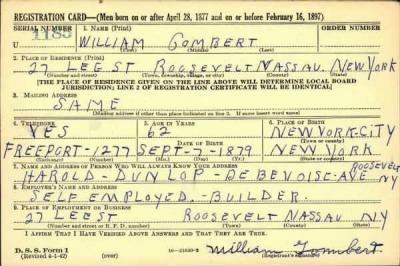 REGISTRATION CARD—(Men born on or after April 28, 1877 and on or before February 16, 1897)
SERIAL NUMBER 1. NAME (Print) ORDER NUMBER
U 1185 WILLIAM GOMBERT
(First) (Middle) (Last)
2. PLACE OF RESIDENCE (Print)
27 LEE ST ROOSEVELT NASSAU. NEW YORK
(Number and street) (Town, township, village, or city) (County) (State)
[THE PLACE OF RESIDENCE GIVEN ON THE LINE ABOVE WILL DETERMINE LOCAL BOARD
JURISDICTION; LINE 2 OF REGISTRATION CERTIFICATE WILL BE IDENTICAL]
3. MAILING ADDRESS
SAME
(Mailing address if other than place indicated on line 2. If same insert word same)
4. TELEPHONE 5. AGE IN YEARS 6. PLACE OF BIRTH
YES 62 NEW YORK-CITY
DATE OF BIRTH (Town or county)
FREEPORT-1277 SEPT-7-1879 NEW YORK
(Exchange) (Number) (Mo.) (Day) (Yr.) (State or country)
7. NAME AND ADDRESS OF PERSON WHO WILL ALWAYS KNOW YOUR ADDRESS ROOSEVELT
HAROLD-DUNLOP-DEBEVOISE-AVE NY
8. EMPLOYER'S NAME AND ADDRESS
SELF EMPLOYED. BUILDER.
9. PLACE OF EMPLOYMENT OR BUSINESS
27 LEE ST ROOSEVELT NASSAU NY
(Number and street or R. F. D. number) (Town) (County) (State)
I AFFIRM THAT I HAVE VERIFIED ABOVE ANSWERS AND THAT THEY ARE TRUE.
D. S. S. Form 1
(Revised 4-1-42) (over) William Gombert
(Registrant's signature)